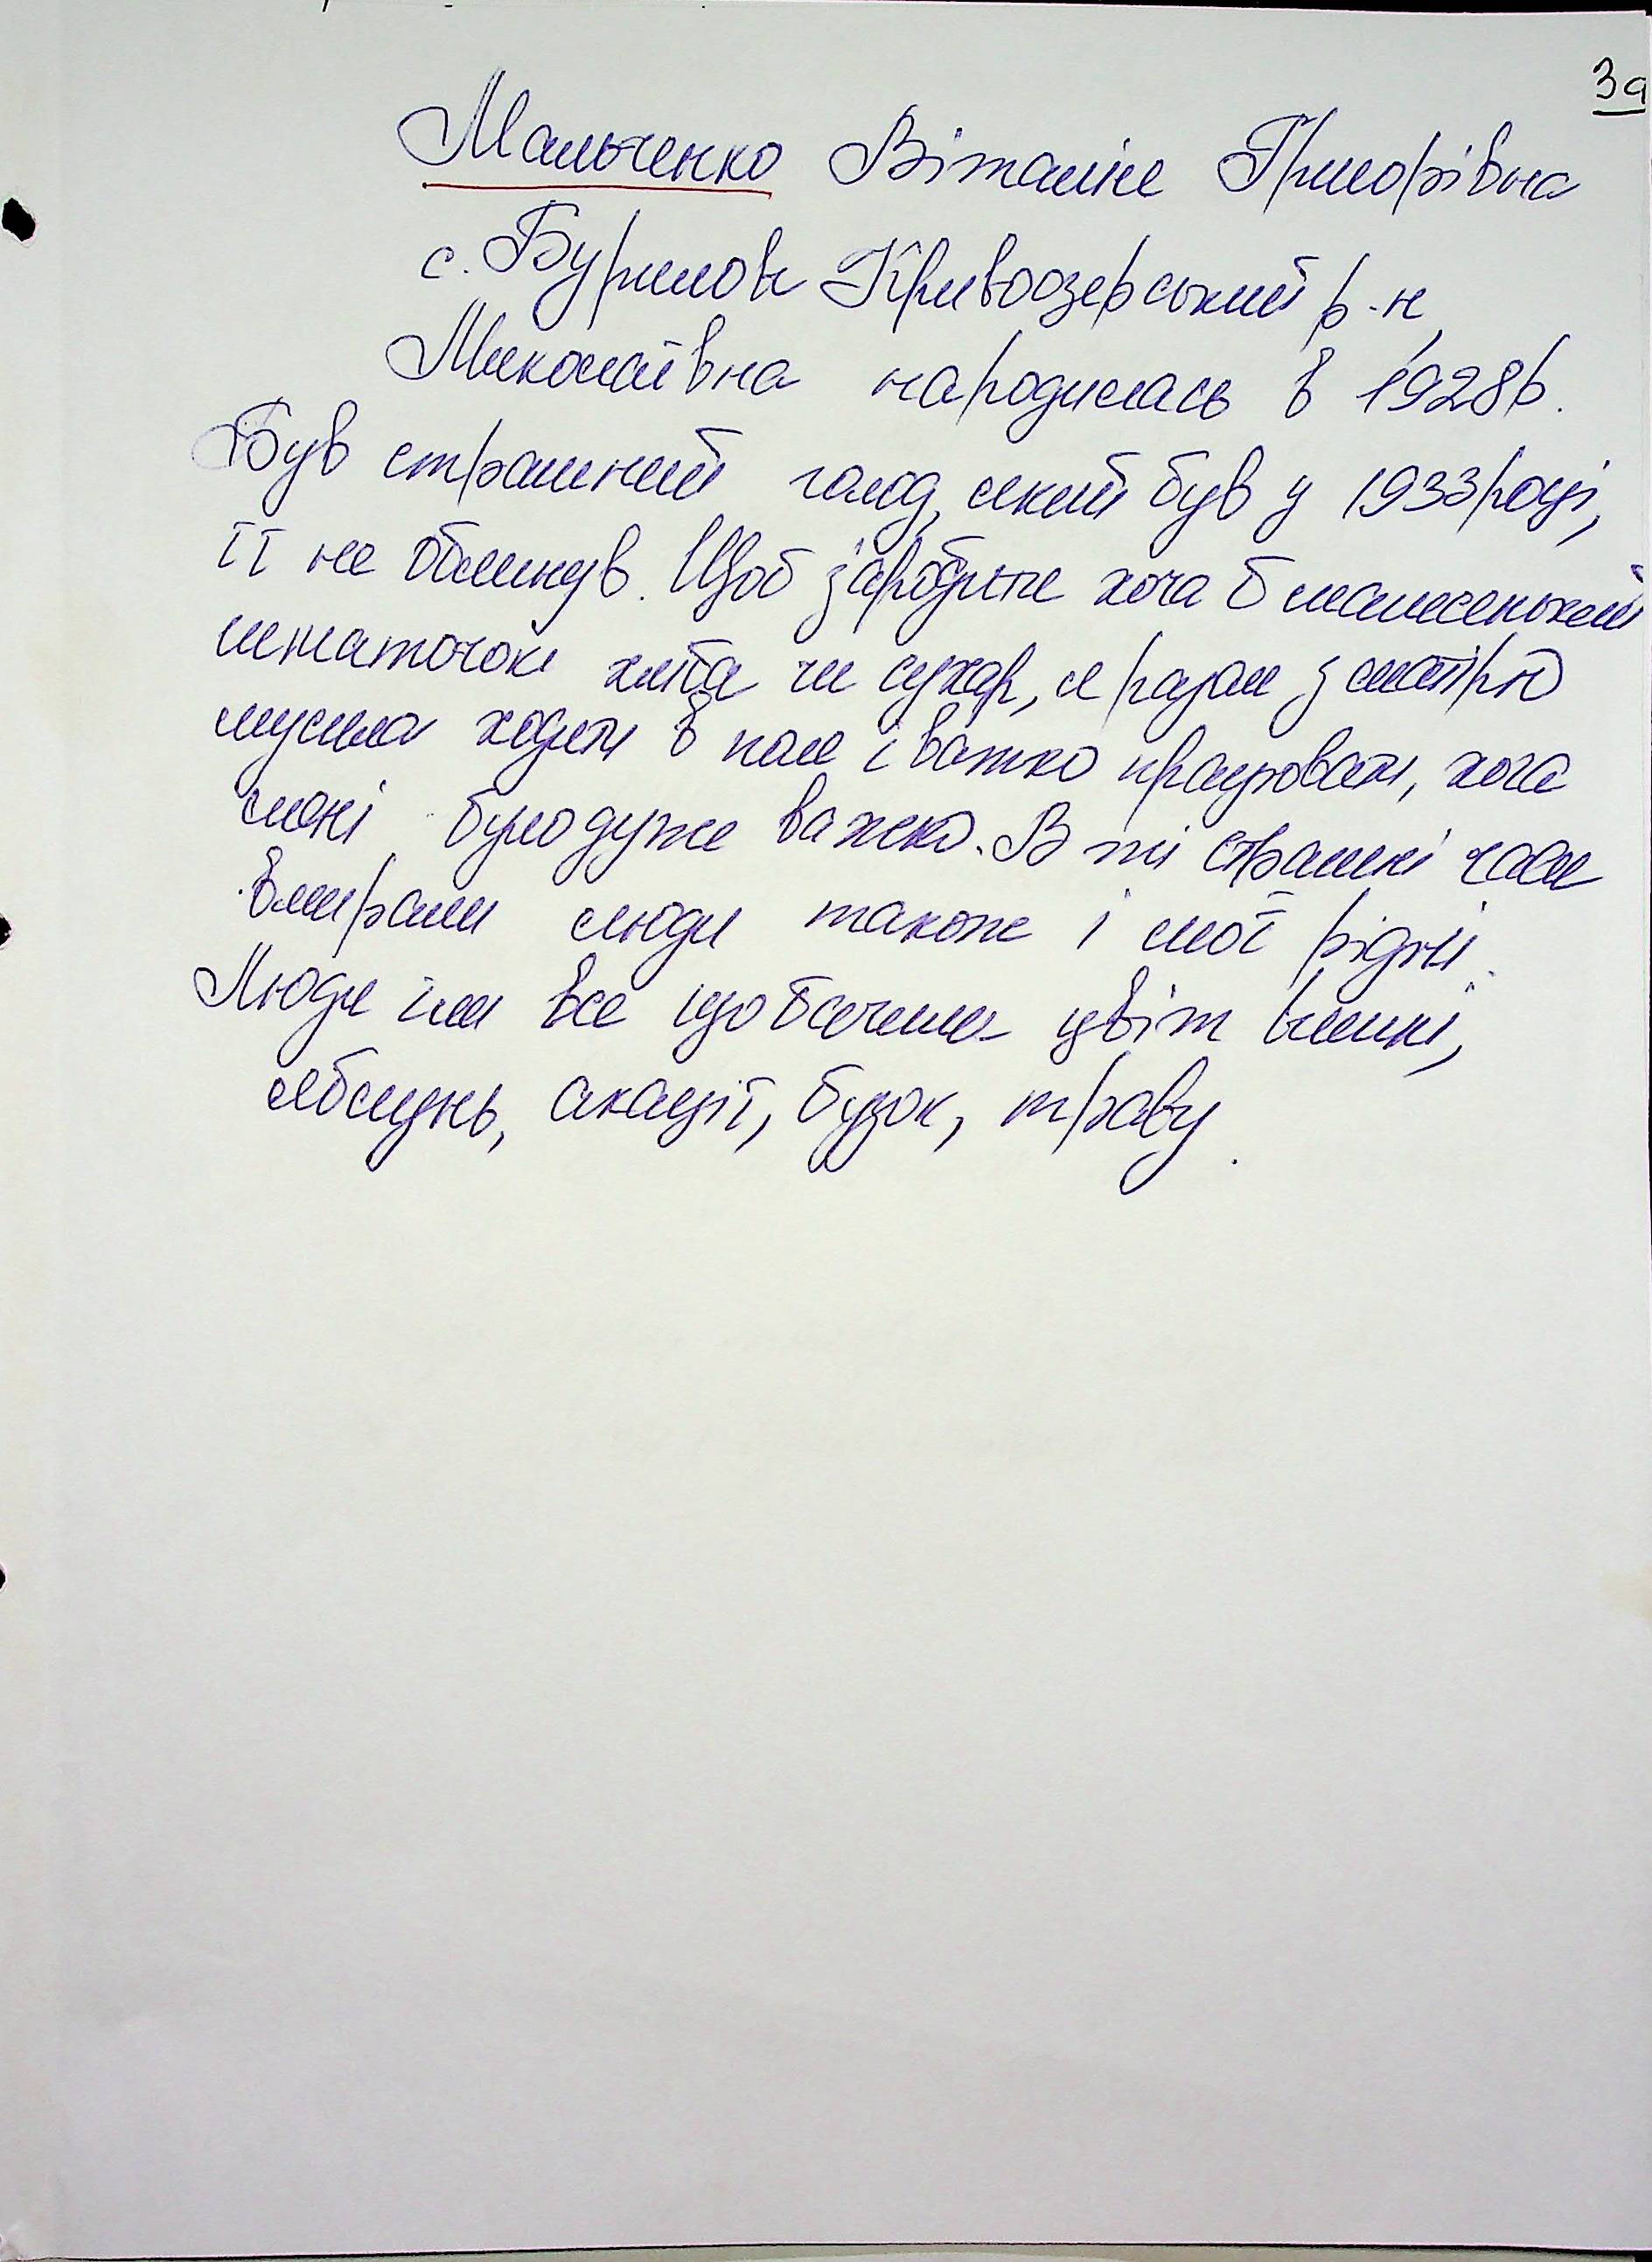 3а
Мальченко Віталіне Григорівна
с. Бурилове Кривоозерський р-н,
Миколаївна народилась в 1928р.
Був страшний голод, який був у 1933 році,
її не обминув. Щоб заробити хоча б малесенький
шматочок хліба чи сухар, я разом з матірю
мусила ходити в поле і важко працювати, хоча
мені було дуже важко. В ті страшні часи
вмирали люди також і мої рідні.
Люди їли все що бачили цвіт вишні,
яблунь, акації, бузок, траву.